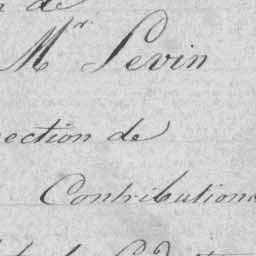 de
Mr. Levin
ection de
Contributions